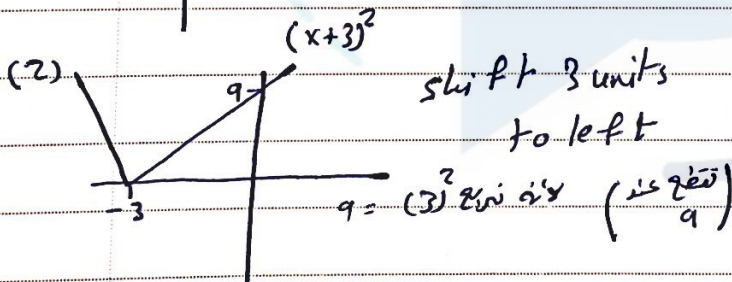 (2) (x+3)²
9
shift 3 units
to left
-3
9 = (3)² لأنه تربيع (تقطع عند 9)